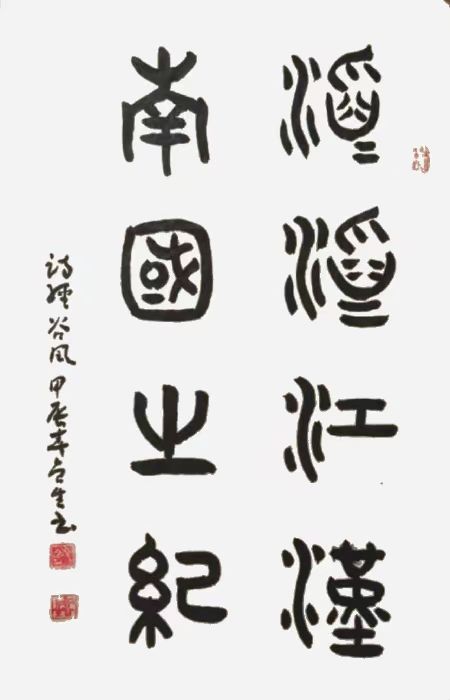 滔滔江漢
南國之紀
詩經谷風甲辰年